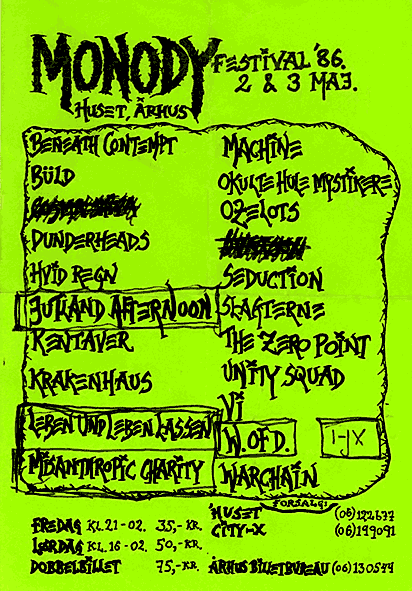 MONODY
FESTIVAL '86.
2 & 3 MAJ.
HUSET, ÅRHUS
BENEATH CONTEMPT
BÜLD
DUNDERHEADS
HVID REGN
JUTLAND AFTERNOON
KENTAVER
KRAKENHAUS
LEBEN UND LEBEN LASSEN
MISANTHROPIC CHARITY
MACHINE
OKULTE HULE MYSTIKERE
OZELOTS
SEDUCTION
SLAGTERNE
THE ZERO POINT
UNITY SQUAD
VI
W. OF D.
I-JX
WARCHAIN
FREDAG KL. 21-02. 35,- KR.
LØRDAG KL. 16-02. 50,- KR.
DOBBELBILLET 75,- KR.
FORSALG:
HUSET (06) 122677
CITY-X (06) 199091
ÅRHUS BILLETBUREAU (06) 130544